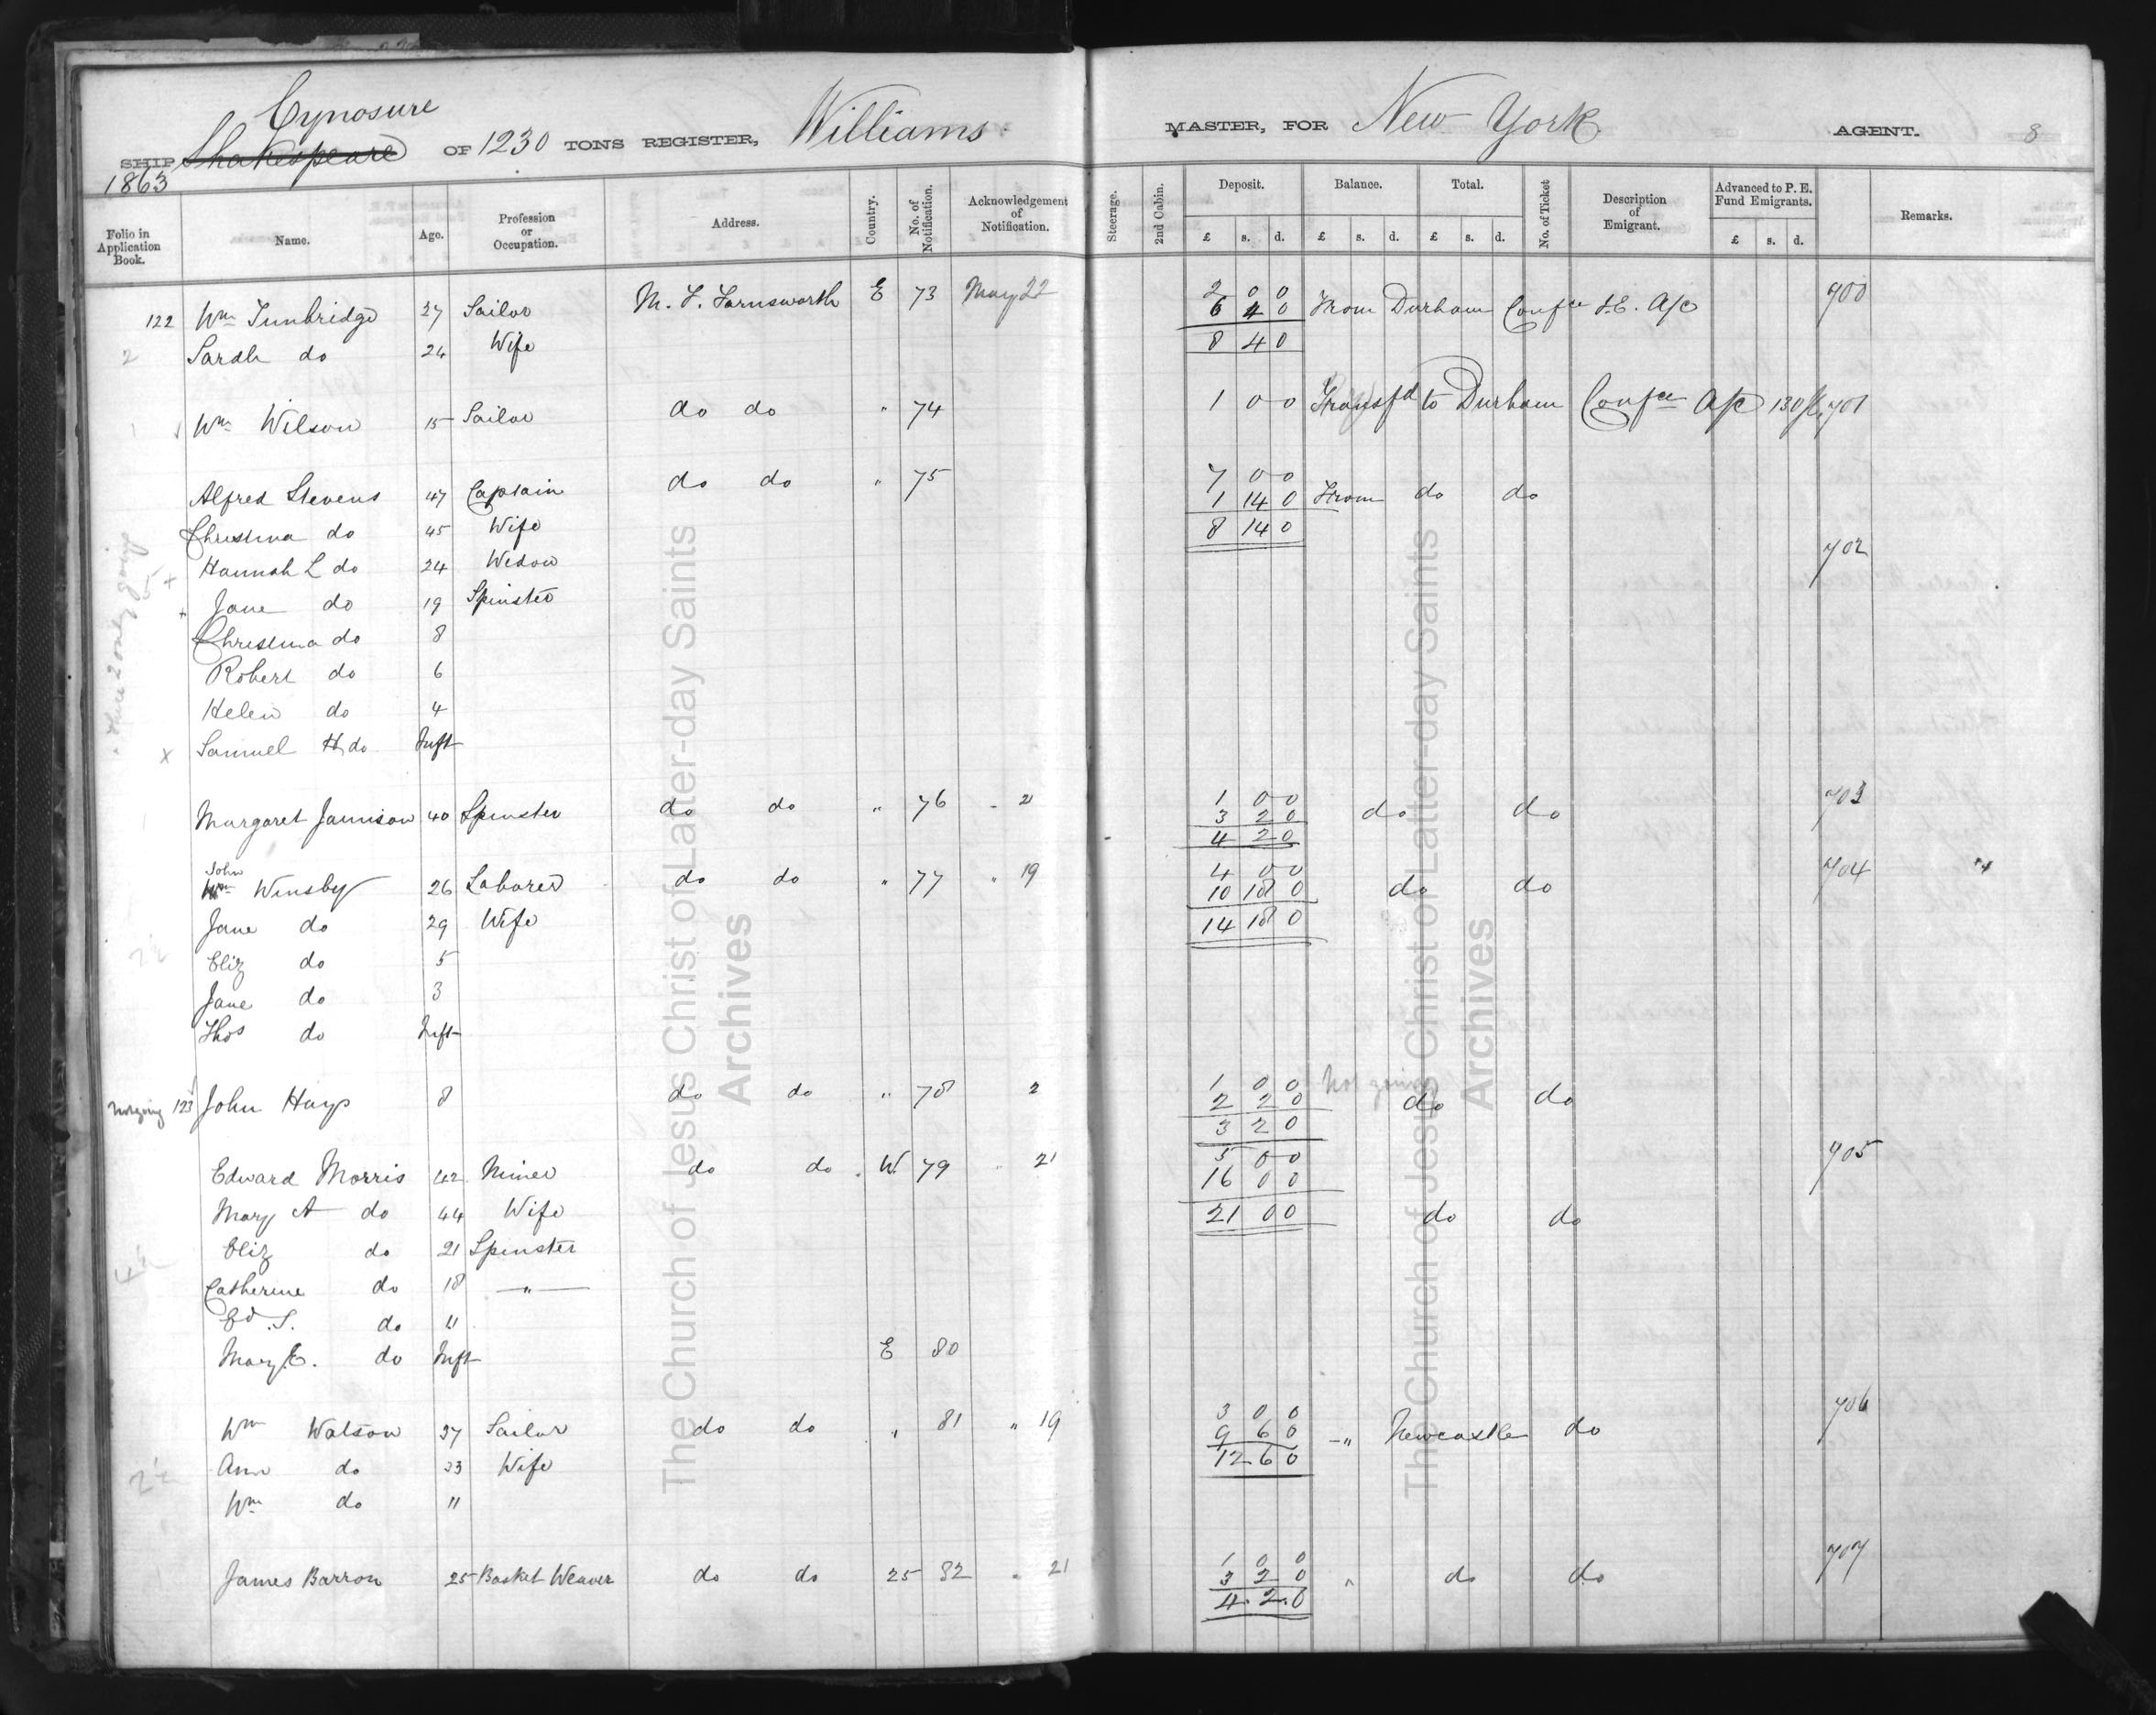 Cynosure
SHIP Shakespeare OF 1230 TONS REGISTER, Williams MASTER, FOR New York AGENT. 8
1863
Folio in Application Book. Name. Age. Profession or Occupation. Address. Country. No. of Notification. Acknowledgement of Notification. Steerage. 2nd Cabin. Deposit. Balance. Total. No. of Ticket Description of Emigrant. Advanced to P. E. Fund Emigrants. Remarks.
£ s. d. £ s. d. £ s. d. £ s. d.
2 0 0
122 Wm Tunbridge 27 Sailor M. L. Farnsworth E 73 May 22 6 4 0 From Durham Confce A/c 700
2 Sarah do 24 Wife 8 4 0
Wm Wilson 15 Sailor do do " 74 1 0 0 Transfd to Durham Confce A/c 701
7 0 0
Alfred Stevens 47 Captain do do " 75 1 14 0 From do do
Christina do 45 Wife 8 14 0
702
+ Hannah L do 24 Widow
+ Jane do 19 Spinster
Christina do 8
Robert do 6
Helen do 4
x Samuel H do Inft
1 0 0
Margaret Jamison 40 Spinster do do " 76 " 21 3 2 0 do do 703
4 2 0
John 4 0 0
Wm Winsby 26 Laborer do do " 77 " 19 10 18 0 do do 704
Jane do 29 Wife 14 18 0
Eliz do 5
Jane do 3
Thos do Inft
1 0 0 Not going
Not going 123 John Hays 8 do do " 78 2 2 2 0 do do
3 2 0
5 0 0
Edward Morris 42 Miner do do W. 79 " 21 16 0 0 705
Mary A do 44 Wife 21 0 0 do do
Eliz do 21 Spinster
Catherine do 18 "
Ed. S. do 11
Mary E. do Inft E 80
3 0 0 706
Wm Watson 27 Sailor do do " 81 " 19 9 6 0 " Newcastle do
Ann do 23 Wife 12 6 0
Wm do 11
1 0 0 707
James Barron 25 Basket Weaver do do 25 82 " 21 3 2 0 " do do
4. 2. 0
The Church of Jesus Christ of Latter-day Saints
Archives
The Church of Jesus Christ of Latter-day Saints
Archives